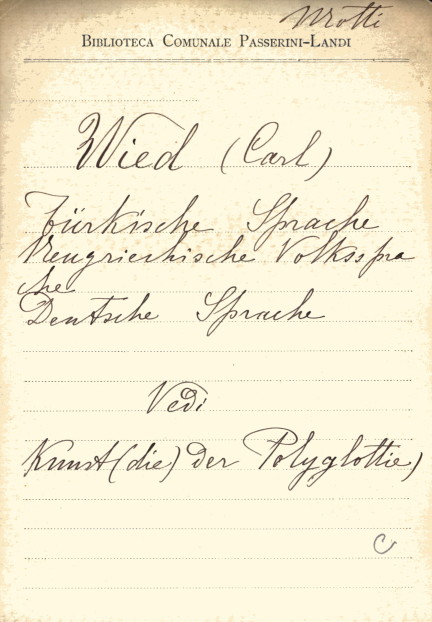 Mrotti
BIBLIOTECA COMUNALE PASSERINI-LANDI
Wied (Carl)
Türkische Sprache
Neugriechische Volksspra
che
Deutsche Sprache
Vedi
Kunst (die) der Polyglottie)
C